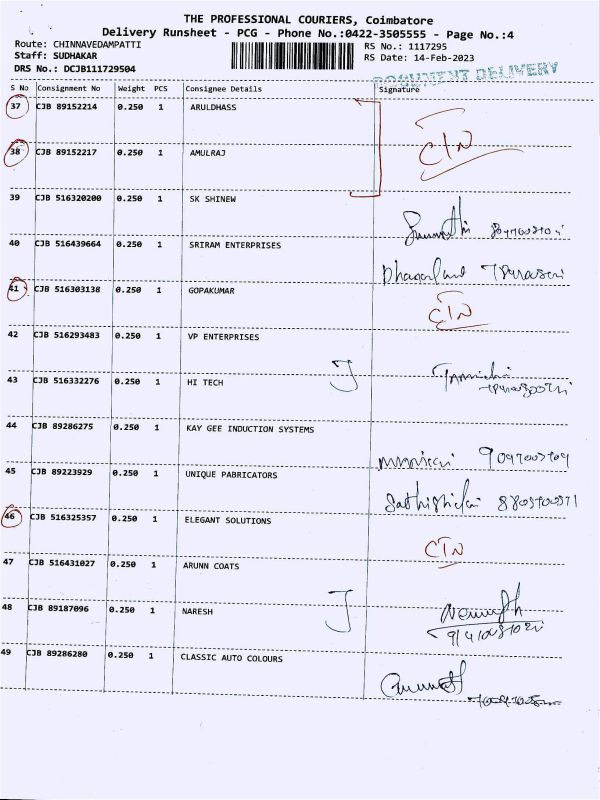 THE PROFESSIONAL COURIERS, Coimbatore
Delivery Runsheet - PCG - Phone No.:0422-3505555 - Page No.:4
Route: CHINNAVEDAMPATTI
RS No.: 1117295
Staff: SUDHAKAR
RS Date: 14-Feb-2023
DRS No.: DCJB111729504
DOCUMENT DELIVERY
S No Consignment No Weight PCS Consignee Details Signature
37 CJB 89152214 0.250 1 ARULDHASS
CIN
38 CJB 89152217 0.250 1 AMULRAJ
39 CJB 516320200 0.250 1 SK SHINEW
40 CJB 516439664 0.250 1 SRIRAM ENTERPRISES
41 CJB 516303138 0.250 1 GOPAKUMAR
CIN
42 CJB 516293483 0.250 1 VP ENTERPRISES
43 CJB 516332276 0.250 1 HI TECH
44 CJB 89286275 0.250 1 KAY GEE INDUCTION SYSTEMS
45 CJB 89223929 0.250 1 UNIQUE PABRICATORS
46 CJB 516325357 0.250 1 ELEGANT SOLUTIONS
CTN
47 CJB 516431027 0.250 1 ARUNN COATS
48 CJB 89187096 0.250 1 NARESH
49 CJB 89286280 0.250 1 CLASSIC AUTO COLOURS